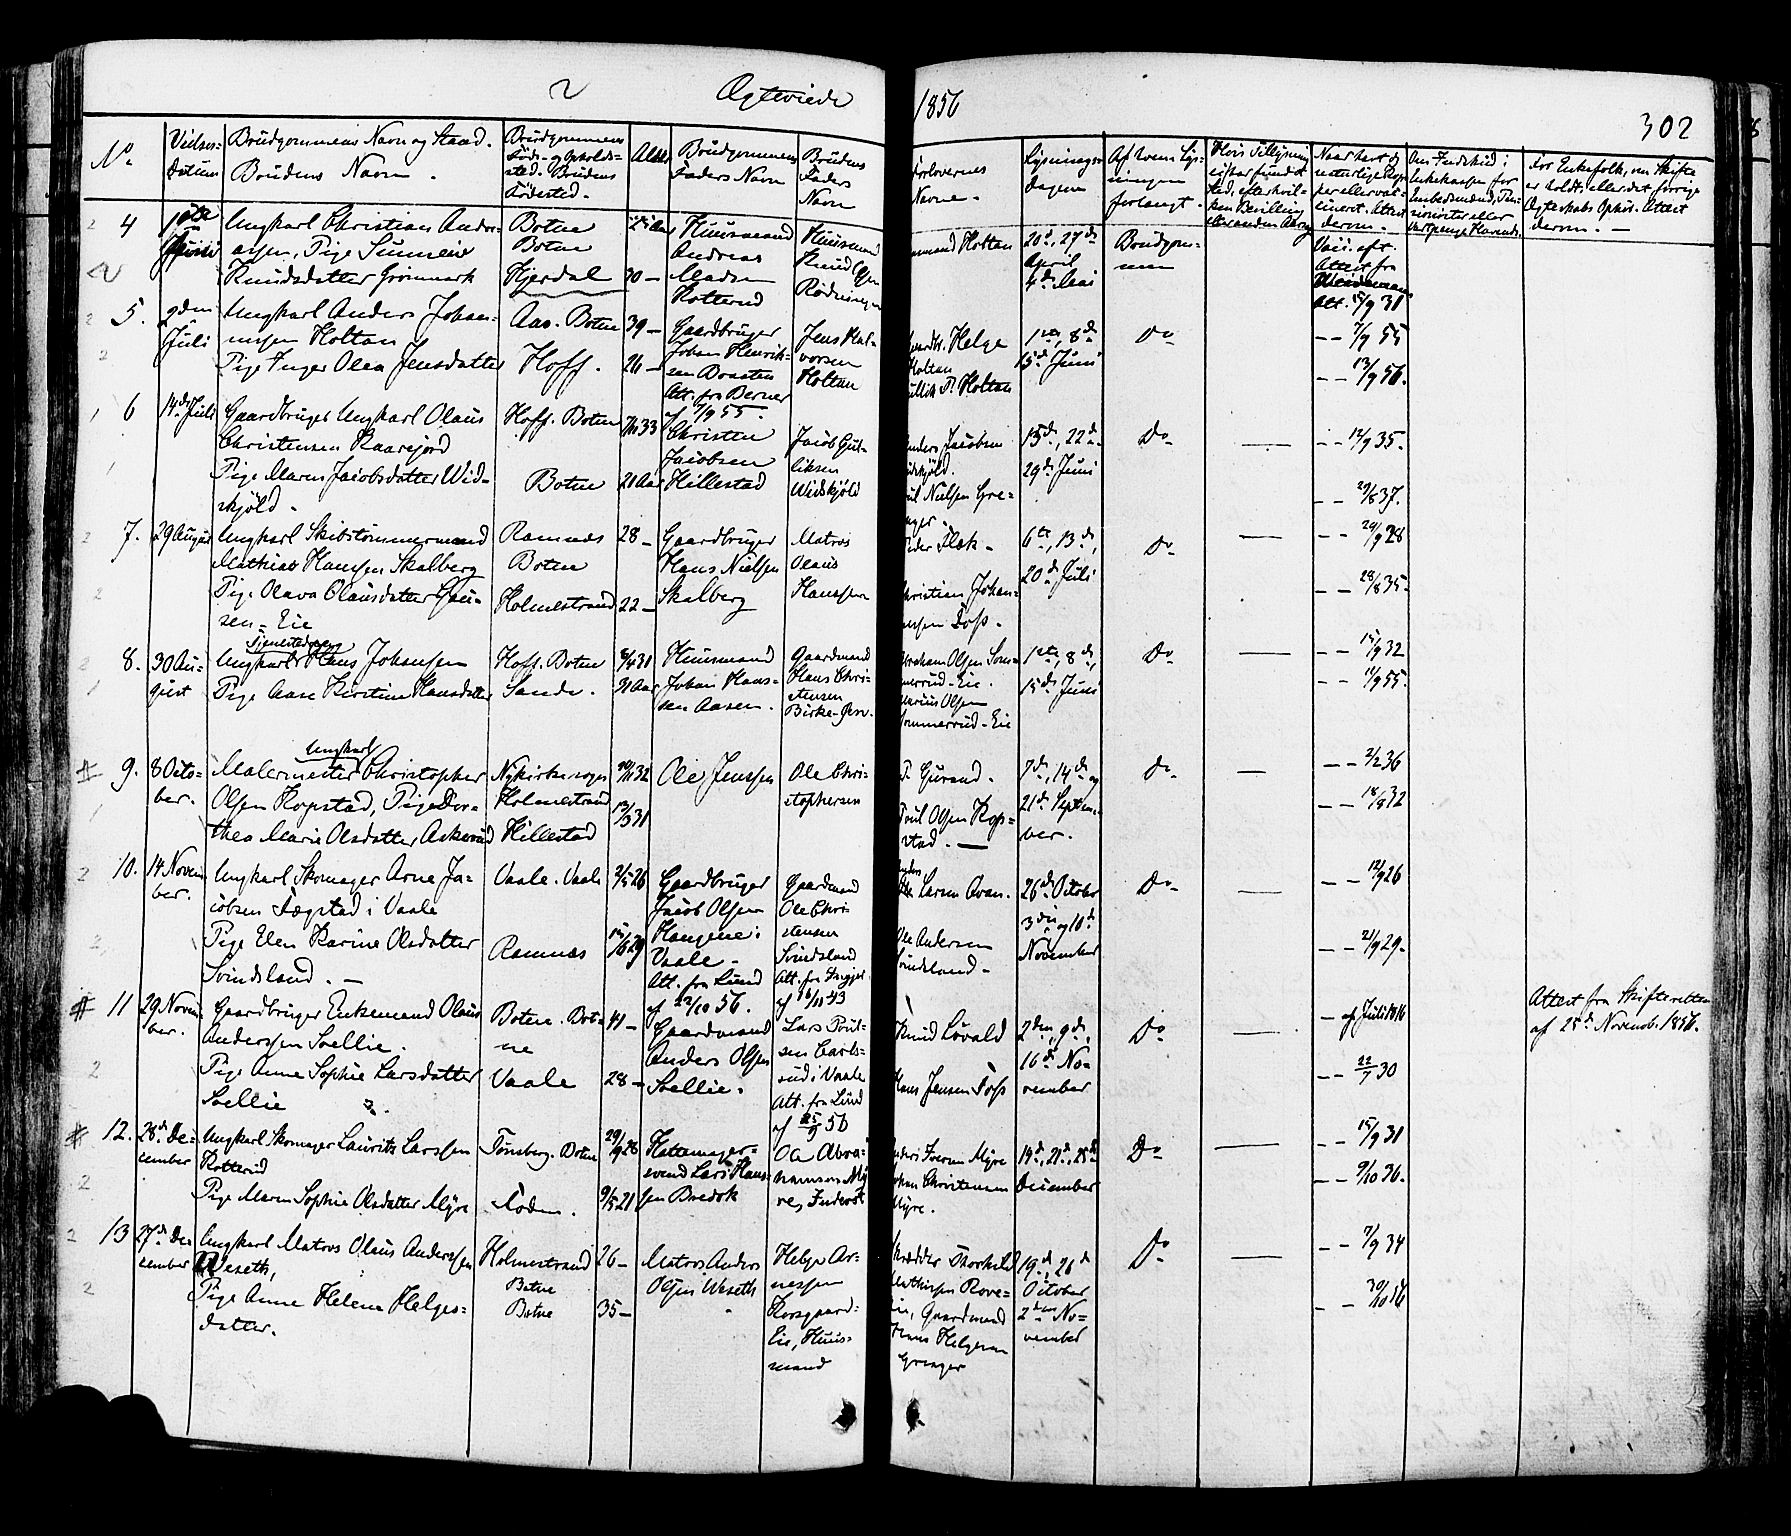 2 Ægteviede 1856 302
No.
Vielses-
Datum
Brudgommens Navn og Stand.
Brudens Navn.
Brudgommens
Føde- og Opholds-
sted. Brudens
Fødested.
Alder
Brudgommens
Faders Navn
Brudens
Faders
Navn
Forlovernes
Navne.
Lysnings-
dagen
Af hvem Lys-
ningen
forlangt.
4
Ungkarl Christian Andre-
asen, Pige
Knudsdatter Grønmark
Botne
Botne
Hjerdal
20
Huusmand
Andreas
Madsen
Rotterud
Huusmand
Knud
Rødningen
Holtan
20d, 27de
April
4de Mai
Brudgom-
men
Vacc. efr.
Attest fra
Att. 15/9 31
5.
9den
Juli
Ungkarl Anders Johan-
nesen Holtan
Pige Inger Olea Jensdatter
Aas. Botne
Hoff.
39
26
Gaardbruger
Johan Henrik-
sen Braaten
Att. fra Berner
af 7/9 55.
Jens Hal-
vorsen
Holtan
Helge
Holtan
P. Holtan
1ste, 8de
15de Juni
Do
7/9 55
13/9 56.
6
14de Juli
Gaardbruger Ungkarl Olaus
Christensen Kaarejord
Pige Maren Jacobsdatter Wid-
skjøld.
Hoff. Botne
Botne
7/11 33
21 Aar
Christen
Jacobsen
Hillestad
Jacob Gul-
liksen
Widskjøld
Anders Jacobsen
Nielsen Gre-
15de, 22de
29de Juni
Do
12/9 35.
29/8 37.
7.
29 August
Ungkarl Skibstømmermand
Mathias Hansen Skalberg
Pige Olava Olausdatter Gau-
sen-Eie
Ramnæs
Botne
Holmestrand
28
22
Gaardbruger
Hans Nielsen
Skalberg
Matros
Olaus
Hanssen
Peder Flek
Christian Johan-
nesen Foss.
6te, 13de,
20de Juli
Do
29/9 28
28/8 35.
8.
30 Au-
gust
Ungkarl Hans Johansen
Pige Aase Kirstine Hansdatter
Hoff. Botne
Sande.
8/4 31
31 Aar
Huusmand
Johan Hans-
sen Aasen.
Gaardmand
Hans Chri-
stensen
Abraham Olsen Som-
merrud-Eie.
Marius Olsen
Sommerrud-Eie
1ste, 8de,
15de Juni
Do
15/9 32
11/9 55.
9.
8 Octo-
ber.
Ungkarl
Malermester Christopher
Olsen Kopstad, Pige Dor-
thea Marie Olsdatter Askerud
Nykirke sogn
Holmestrand
Hillestad
10/11 32
13/3 31
Ole Jenssen
Ole Chri-
stophersen
Poul Olsen Kop-
stad.
7de, 14de og
21de Septem-
ber.
Do
2/2 36
18/8 32
10.
14 Novem-
ber.
Ungkarl Skomager Arne Ja-
cobsen Fægstad i Vaale
Pige Elen Karine Olsdatter
Svindsland.
Vaale. Vaale
Ramnæs
2/5 26
15/6 29
Gaardbruger
Jacob Olsen
Haugene i
Vaale.
Att. fra Lund
af 22/10 56.
Gaardmand
Ole Chri-
stensen
Svindsland
Att. fra
af 16/11 43
Larsen
Ole Andersen
Svindsland.
26de October
3die og 10de
November
Do
12/9 26
21/9 29.
11
29 Novem-
ber.
Gaardbruger Enkemand Olaus
Anderssen Sollie.
Pige Anne Sophie Larsdatter
Sollie
Botne. Bot-
ne
Vaale
41
28
Gaardmand
Anders Olsen
Sollie.
Lars Poul-
sen Carls-
rud i Vaale
Att. fra Lund
af 25/9 56
Knud Løvald
Hans Jensen Foss
2den, 9de,
16de No-
vember
Do
af Juli 1816
22/7 30
Attest fra Skifteretten
af 25de Novemb. 1856.
12.
28de De-
cember
Ungkarl Skomager Lauritz Larssen
Rotterud
Pige Maren Sophie Olsdatter Myre
Tønsberg. Botne
Foden.
29/9 28
9/5 21
Hattemager-
svend Lars Hans-
sen Bredok
Ola Abra-
hamsen My-
re, Inderst
Anders Iversen Myre
Johan Christensen
Myre.
19de, 21de, 25de
December
Do
15/9 31
9/10 36.
13
27de De-
cember
Ungkarl Matros Olaus Anderssen
Weseth,
Pige Anne Helene Helges-
datter.
Holmestrand
Botne
Botne
26
35
Matros Anders
Olsen Weseth
Helge Ar-
nessen
Korsgaard-
Eie, Huus-
mand
Skrædder Thorkild
Mathisen Rove-
Eie, Gaardmand
Hans Helgesen
Grenager
19de, 26de
October
2den No-
vember
Do
7/9 34
30/10 56